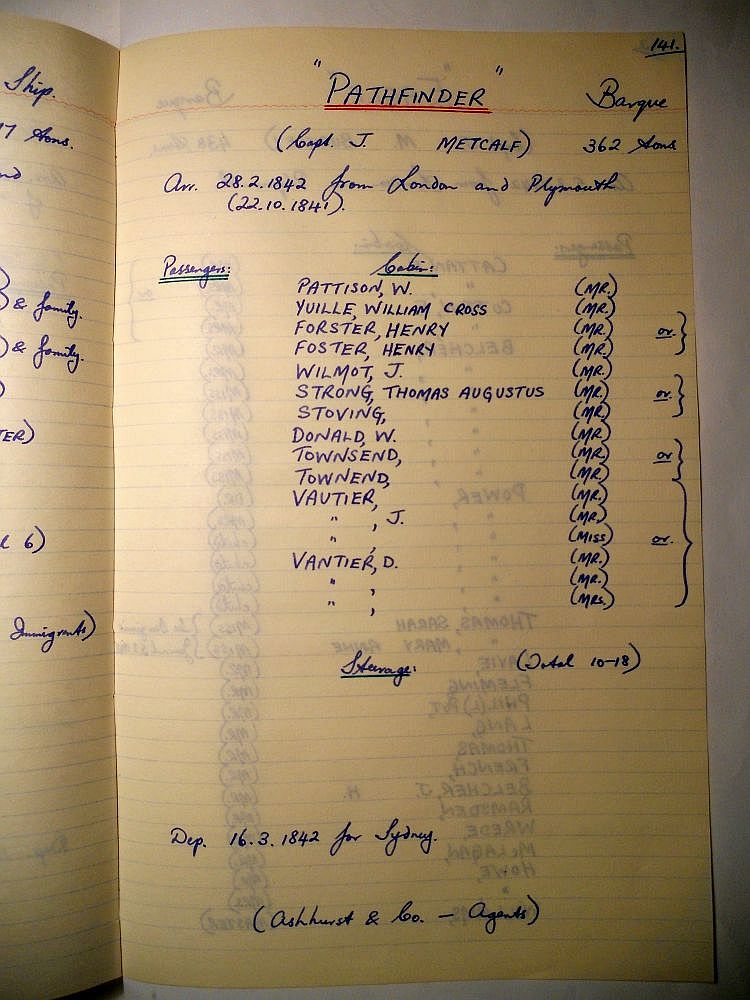 Ship.
17 tons.
) & family.
) & family.
TER)
l 6)
Immigrants)
141.
"PATHFINDER" Barque
(Capt. J. METCALF) 362 tons
Arr. 28.2.1842 from London and Plymouth
(22.10.1841).
Passengers: Cabin:
PATTISON, W. (MR.)
YUILLE, WILLIAM CROSS (MR.)
FORSTER, HENRY (MR.) or.
FOSTER, HENRY (MR.)
WILMOT, J. (MR.)
STRONG, THOMAS AUGUSTUS (MR.) or.
STOVING, (MR.)
DONALD, W. (MR.)
TOWNSEND, (MR.) or
TOWNEND, (MR.)
VAUTIER, (MR.)
" , J. (MR.)
" , (MISS) or.
VANTIER, D. (MR.)
" , (MR.)
" , (MRS.)
Steerage: (Total 10-18)
Dep. 16.3.1842 for Sydney.
(Ashhurst & Co. - Agents)